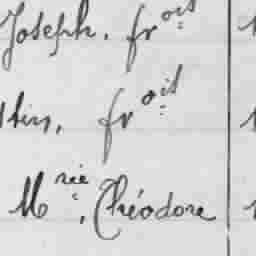 Joseph, frois
tin, frois
Mrie, Théodore